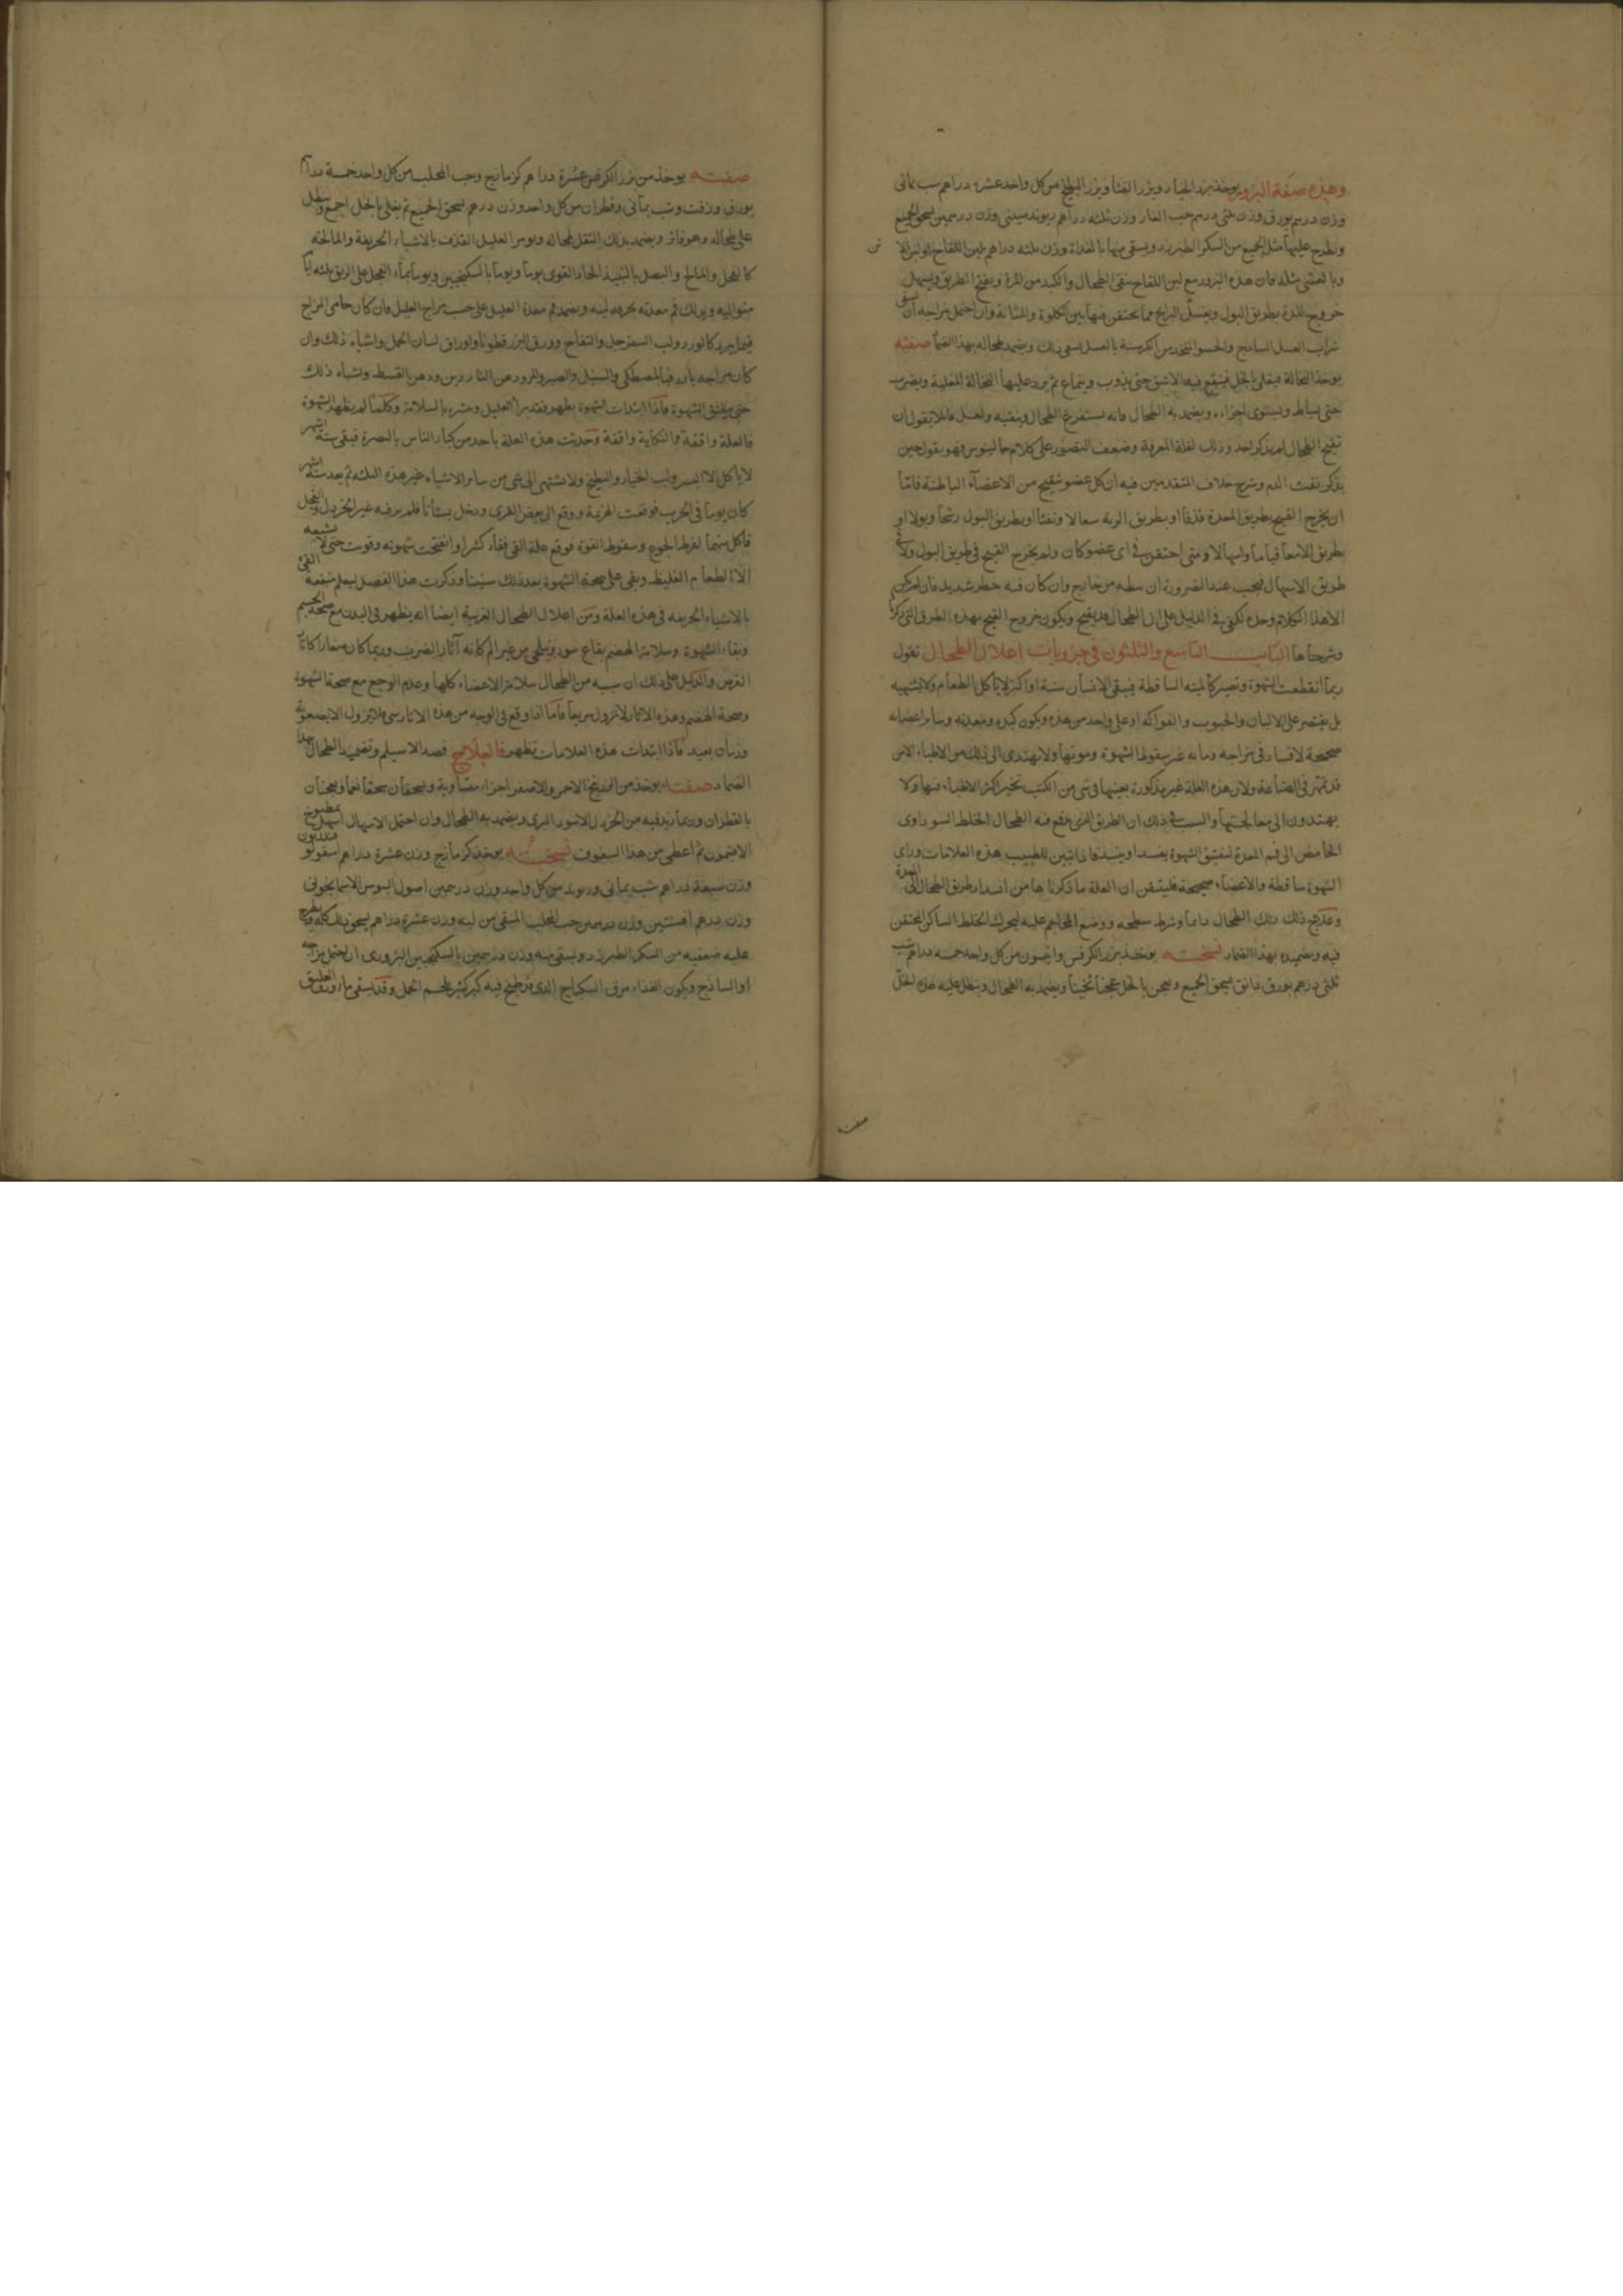 وهذه صفة البزور يوخذ بزر الخيار وبزر القثا وبزر البطيخ من كل واحد عشرة دراهم شب يمانى
وزن درهم بورق وزن ثلثى درهم حب الغار وزن ثلثه دراهم ريوند صينى وزن درهمين يسحق الجميع
ويطرح عليها مثل الجميع من السكر الطبرزد ويسقى منها بالغداة وزن ثلثه دراهم بلبن اللقاح
وبالعشى مثله فان هذه البزور مع لبن اللقاح ينقى الطحال والكبد من المدة ويفتح الطريق ويسهل
خروج المدة بطريق البول ويغسل البرابخ مما يحتقن فيها بين الكلوة والمثانة وان احتمل مزاجه ان يسقى
شراب العسل الساذج والحسو المتخذ من الكرسنة بالعسل سقى ذلك ويضمد طحاله بهذا الضماد صفته
يوخذ النخالة فيغلى بالخل فينقع فيه الاشق حتى يذوب وينماع ثم يرد عليها النخالة المغلية ويضرب
حتى يختلط ويستوى اجزاءه ويضمد به الطحال فانه يستفرغ الطحال وينقيه ولعل قائلا يقول ان
تقيح الطحال لم يذكره احد وذلك لقلة المعرفة وضعف التصور على كلام جالينوس فهو يقول حين
يذكر نفث الدم وشرح خلاف المتقدمين فيه ان كل عضو يتقيح من الاعضآء الباطنة فاما
ان يخرج القيح بطريق المعدة قذفا او بطريق الرية سعالا ونفثا او بطريق البول رشحا وبولا او
بطريق الامعا قياما واسهالا ومتى احتقن فى اى عضو كان ولم يخرج القيح فى طريق البول ولا فى
طريق الاسهال فيجب عند الضرورة ان يبط من خارج وان كان فيه خطر شديد فان لم يكن
الا هذا الكلام وحده لكفى فى الدليل على ان الطحال قد يتقيح ويكون خروج القيح بهذه الطرق التى ذكرنا
وشرحناها الباب التاسع والثلثون فى جزويات اعلال الطحال نقول
ربما انقطعت الشهوة وتصير كالميتة الساقطة فيبقى الانسان سنة او اكثر لا ياكل الطعام ولا يشتهيه
بل يقتصر على الالبان والحبوب والفواكه او على واحد من هذه ويكون كبده ومعدته وساير اعضايه
صحيحة لا فساد فى مزاجه وما به غير سقوط الشهوة وموتها ولا يهتدى الى ذلك من الاطباء الا من
قد تمهر فى الصناعة ولان هذه العلة غير مذكورة بعينها فى شى من الكتب تحير اكثر الاطباء فيها ولا
يهتدون الى معالجتها والسبب فى ذلك ان الطريق الذى يدفع فيه الطحال الخلط السوداوى
الحامض الى فم المعدة لتفتيق الشهوة يفسد او ينسد فاذا تبين للطبيب هذه العلامات وراى
الشهوة ساقطة والاعضاء صحيحة فليتيقن ان العلة ما ذكرناها من انسداد طريق الطحال الى المعدة
وعلاج ذلك دلك الطحال دايما وشرط سطحه ووضع المحاجم عليه ليحرك الخلط الساكن المحتقن
فيه ويضمده بهذا الضماد نسخته يوخذ بزر الكرفس وانيسون من كل واحد خمسه دراهم شب
ثلثى درهم بورق دانق يسحق الجميع ويعجن بالخل عجنا ثخينا ويضمد به الطحال ويطلى عليه هذه الخل
صفت
صفته يوخذ من بزر الكرفس عشرة دراهم كزمازج وحب المحلب من كل واحد خمسة دراهم
بورق وزفت وشب يمانى وقطران من كل واحد وزن درهم يسحق الجميع ثم يغلى بالخل اجمع ويطلى
على طحاله وهو فاتر ويضمد بذلك الثفل طحاله ويومر العليل القذف بالاشياء الحريفة والمالحة
كالفجل والمالح والبصل بالنبيذ الحار القوى يوما ويوما بالسكنجبين ويوما بماء الفجل على الريق ثلثه ايام
متواليه ويدلك فم معدته بخرقه لينه ويضمد فم معدة العليل على حسب مزاج العليل فان كان حامى المزاج
فيما يبرد كالورد ولب السفرجل والتفاح وورق البزرقطونا واوراق لسان الحمل واشباه ذلك وان
كان مزاجه باردا فبالمصطكى والسنبل والصبر والمر ودهن الناردين ودهن القسط واشباه ذلك
حتى ينفتق الشهوة فاذا ابتدات الشهوة يظهر فقد برا العليل وبشره بالسلامة وكلما لم يظهر الشهوة
فالعلة واقفة والنكاية واقفة وحدثت هذه العلة باحد من كبار الناس بالبصرة فبقى ستة اشهر
لا ياكل الا البسر ولب الخيار والبطيخ ولا يشتهى الى شى من ساير الاشياء غير هذه الثلثه ثم بعد ستة اشهر
كان يوما فى الحرب فوقعت الهزيمة ووقع الى بعض القرى ودخل بستانا فلم ير فيه غير الخردل والفجل
فاكل منهما لفرط الجوع وسقوط القوة فوقع عليه القى فقاء كثيرا وانفتحت شهوته وقويت حتى لا يشبعه
الا الطعام الغليظ وبقى على صحة الشهوة بعد ذلك سنينا وذكرت هذا الفصل ليعلم منفعة القى
بالاشياء الحريفه فى هذه العلة ومن اعلال الطحال الغريبة ايضا انه يظهر فى البدن مع صحة الجسم
وبقاء الشهوة وسلامة الهضم بقاع سود وبلخى من غير الم كانه آثار الضرب وربما كان صغارا كاثار
القرص والدليل على ذلك ان سببه من الطحال سلامة الاعضاء كلها وعدم الوجع مع صحة الشهوة
وصحة الهضم وهذه الاثار لا تزول سريعا فاما اذا وقع فى الوجه من هذه الاثار شى فلا يزول الا بصعوبة
وزمان بعيد فاذا ابتدات هذه العلامات تظهر فالعلاج فصد الاسيلم وتضميد الطحال بهذا
الضماد صفته يوخذ من الزرنيخ الاحمر والاصفر اجزاء متساوية ويسحقان سحقا ناعما ويعجنان
بالقطران وربما زيد فيه من الخردل الاسود البرى ويضمد به الطحال وان احتمل الاسهال اسهل بمطبوخ
الافتيمون ثم اعطى من هذا السفوف نسخته يوخذ كزمازج وزن عشرة دراهم اسقولوقندريون
وزن سبعة دراهم شب يمانى وريوند من كل واحد وزن درهمين اصول السوس الاسمانجونى
وزن درهم افسنتين وزن درهمين حب المحلب المنقى من لبه وزن عشرة دراهم يسحق ذلك كله ويطرح
عليه ضعفيه من السكر الطبرزد ويسقى منه وزن درهمين بالسكنجبين البزورى ان احتمل مزاجه
او الساذج ويكون الغذاء مرق السكباج الذى قد طبخ فيه كبر كثير بلحم الحمل وقد يسقى ماء ورق العليق